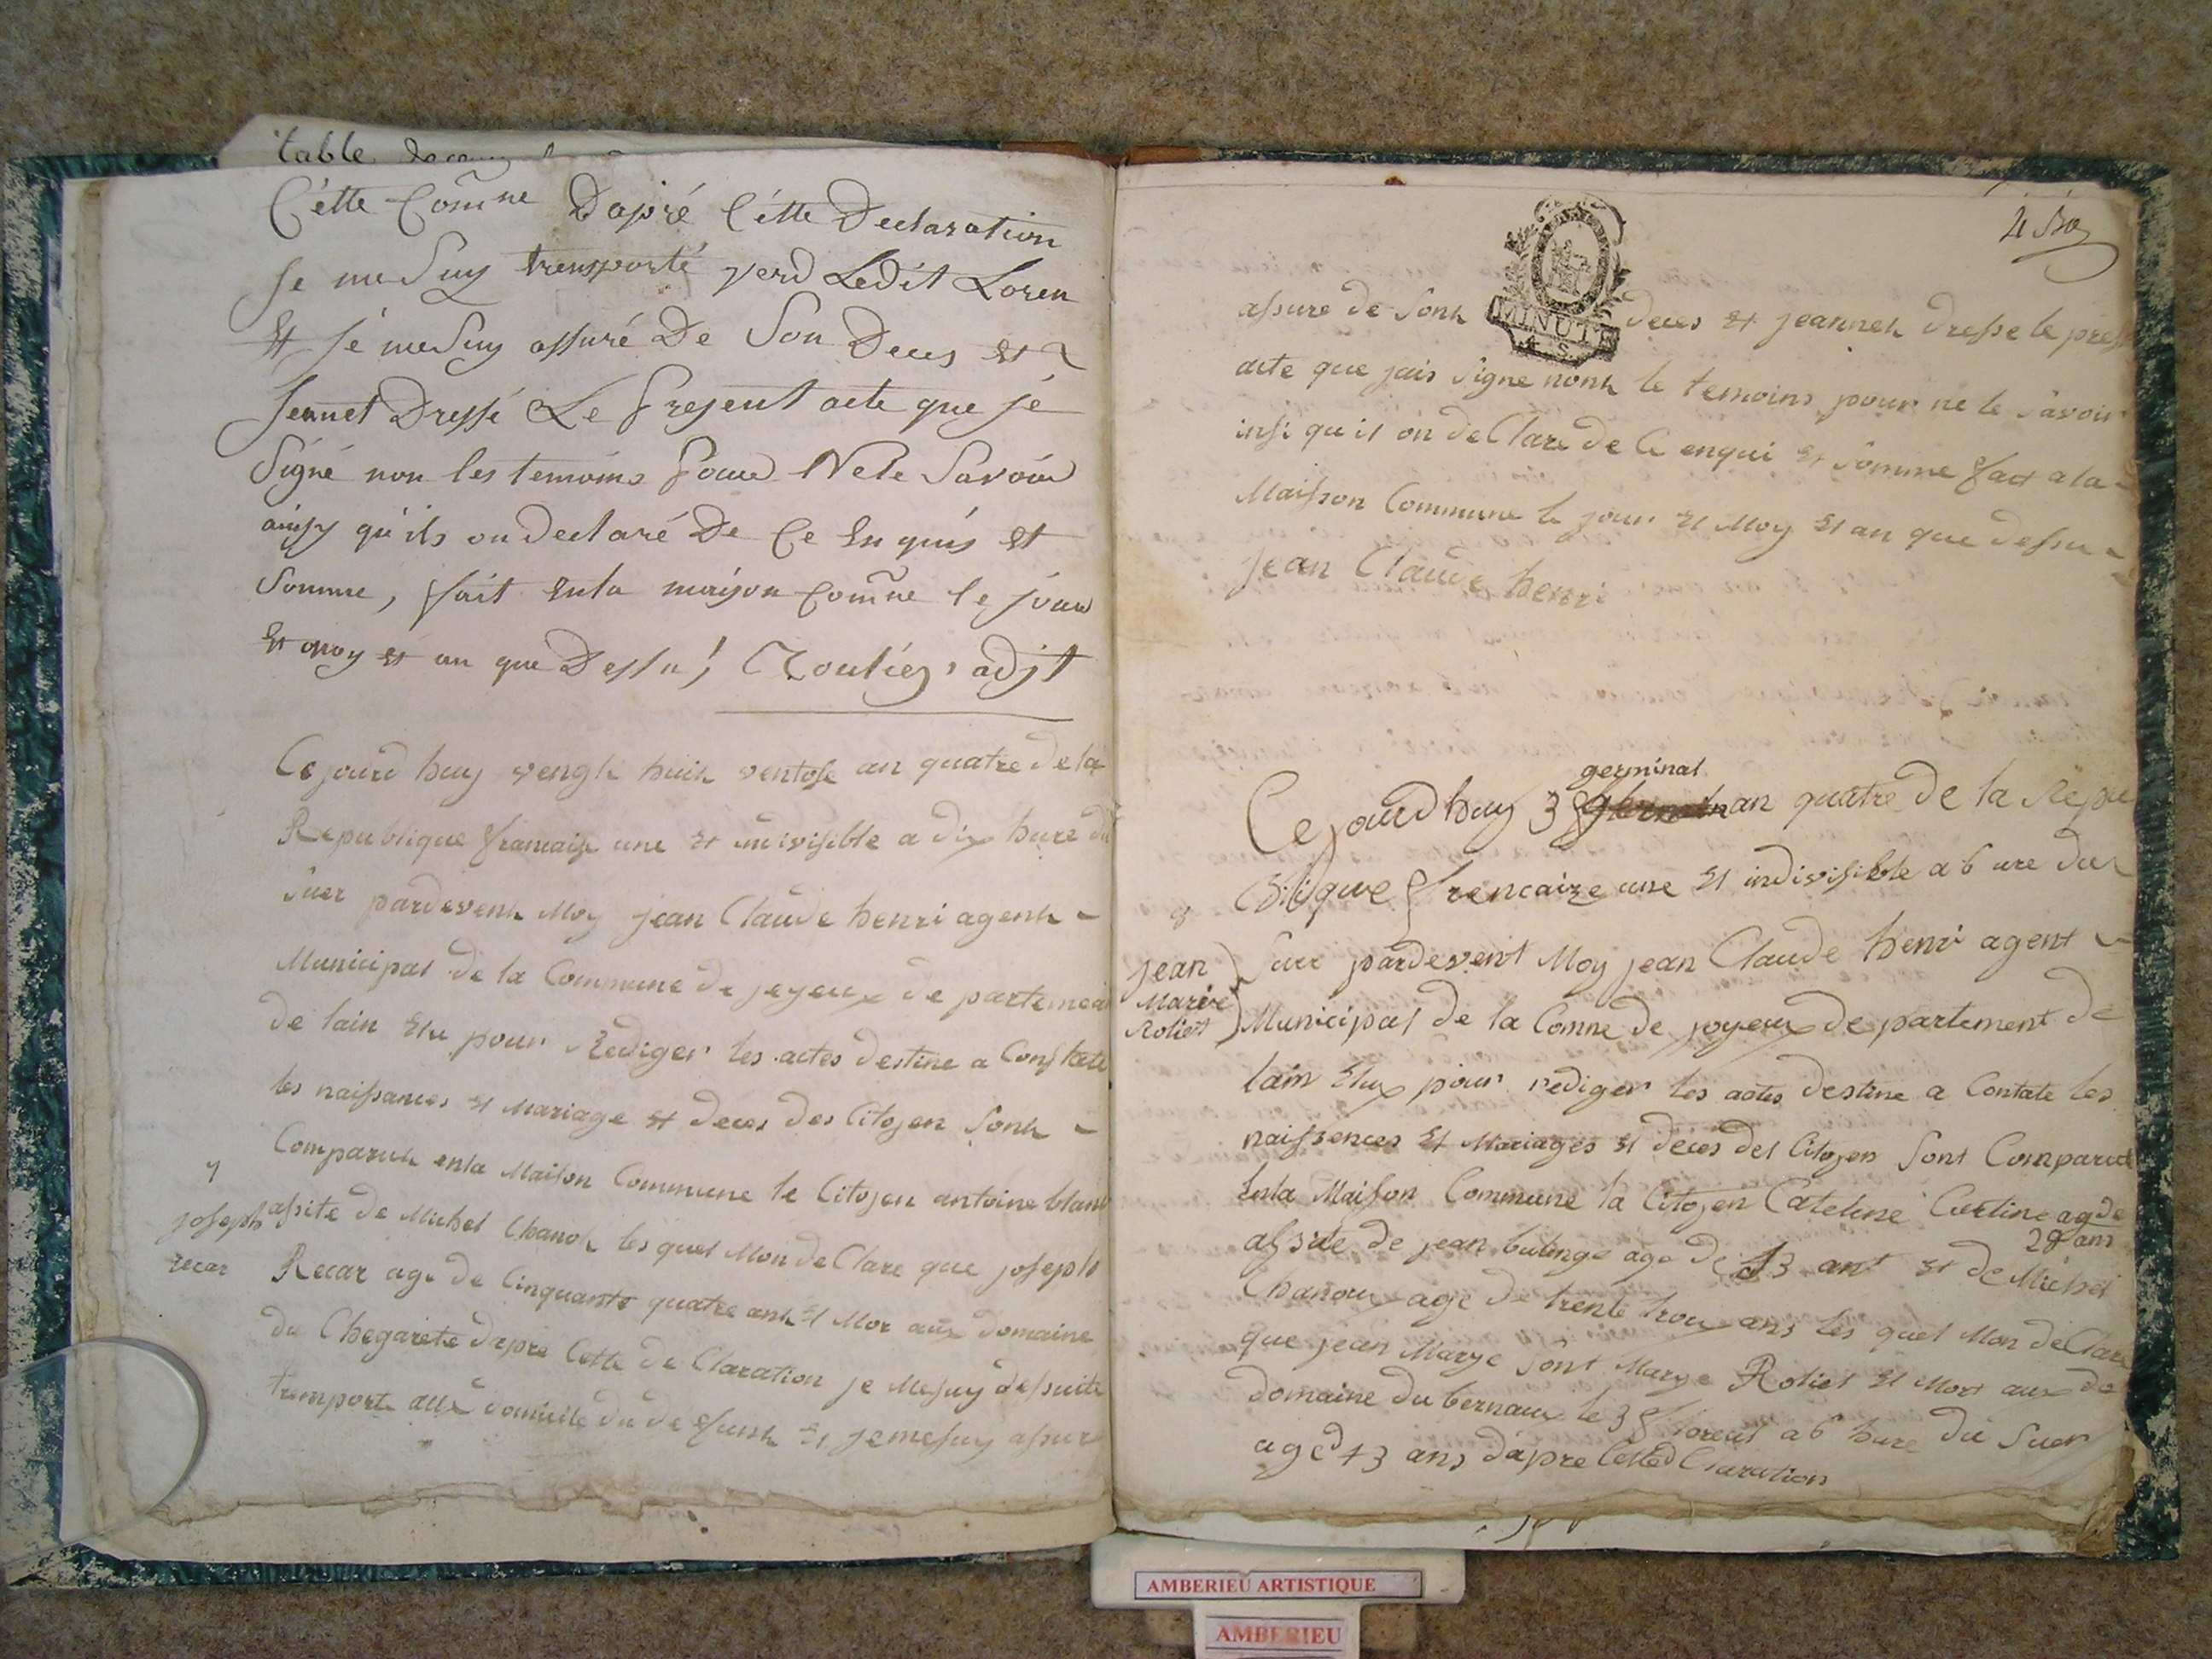 table
Cétte Comñe Dapré Cétte Declaration
Je me Suy transporté verd Ledit Loren
Et Jé me Suy assuré De Son Deces et
Jeannet Dressé Le Present acte que jé
Signé non les temoins Pour Nele Savoir
ainsy qu'ils on declaré De Ce Enquis Et
Somme, fait Enla maison Comñe le jour
Et moy et an que Dessu, Routiez adjt
Ce jourd huy vengh huih ventose an quatre de la
Republique francaize une et indivisible a dix hure du
suer pardevenh Moy jean Claude henri agenh
Municipal de la Commune de joyeux de partemen
de lain Elu pour Rediger les actes destine a Constate
les naissances et Mariage et deces des Citoyen Sonh
Comparuh enla Maison Commune le Citoyen antoine blanc
y
joseph
recar
assite de Michel Chanoh les quel Mon de Clare que joseph
Recar age de Cinquante quatre anh et Mor aux domaine
du Chegarete dapre Cette de Claration je Me suy de suite
tramporte aux domicile du defunh et je me suy assur
4
assure de Sonh deces et jeanneh dresse le pres
MINUTE
acte que jais Signe nonh le temoins pour ne le Savoir
insi quil on de Clare de Ce enqui et Somme fact a la
Maisson Commune le jour et Moy et an que dessu
jean Claude henri
germinal
Ce jourd huy 3 an quatre de la Repu
blique frencaize une et indivisible a 6 ure du
8
jean
Marie
Roliet
Suer pardevent Moy jean Claude henri agent
Municipal de la Comne de joyeux de partement de
lain Elux pour rediger les actes destine a Contate les
naissences et Mariages et deces des Citoyen Sont Comparud
Enla Maison Commune la Citoyen Cateline Curtine ag de
28 ans
assite de jean bulinge age de 13 ant et de Michel
Chanoux age de trente troux ans les quel Mon de Clare
que jean Marye Sont Marye Roliet et Mort aux do
domaine du bernaux le 3 floreal a 6 hure du Suer
age d 43 ans dapre Cette d Claration
AMBERIEU ARTISTIQUE
AMBERIEU